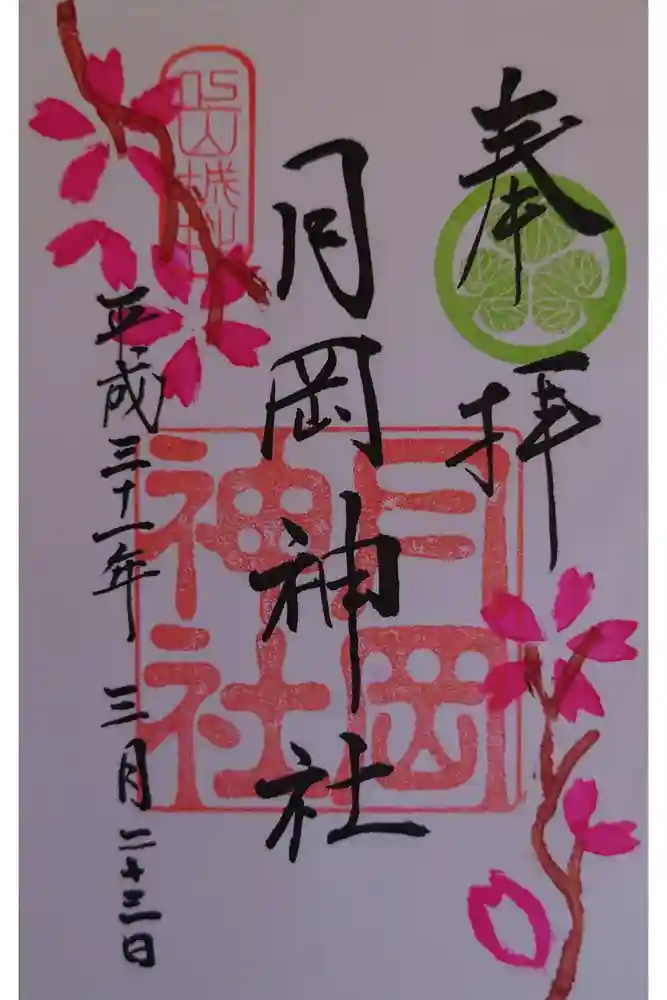 奉拝
月岡神社
平成三十一年 三月二十三日
月岡
神社